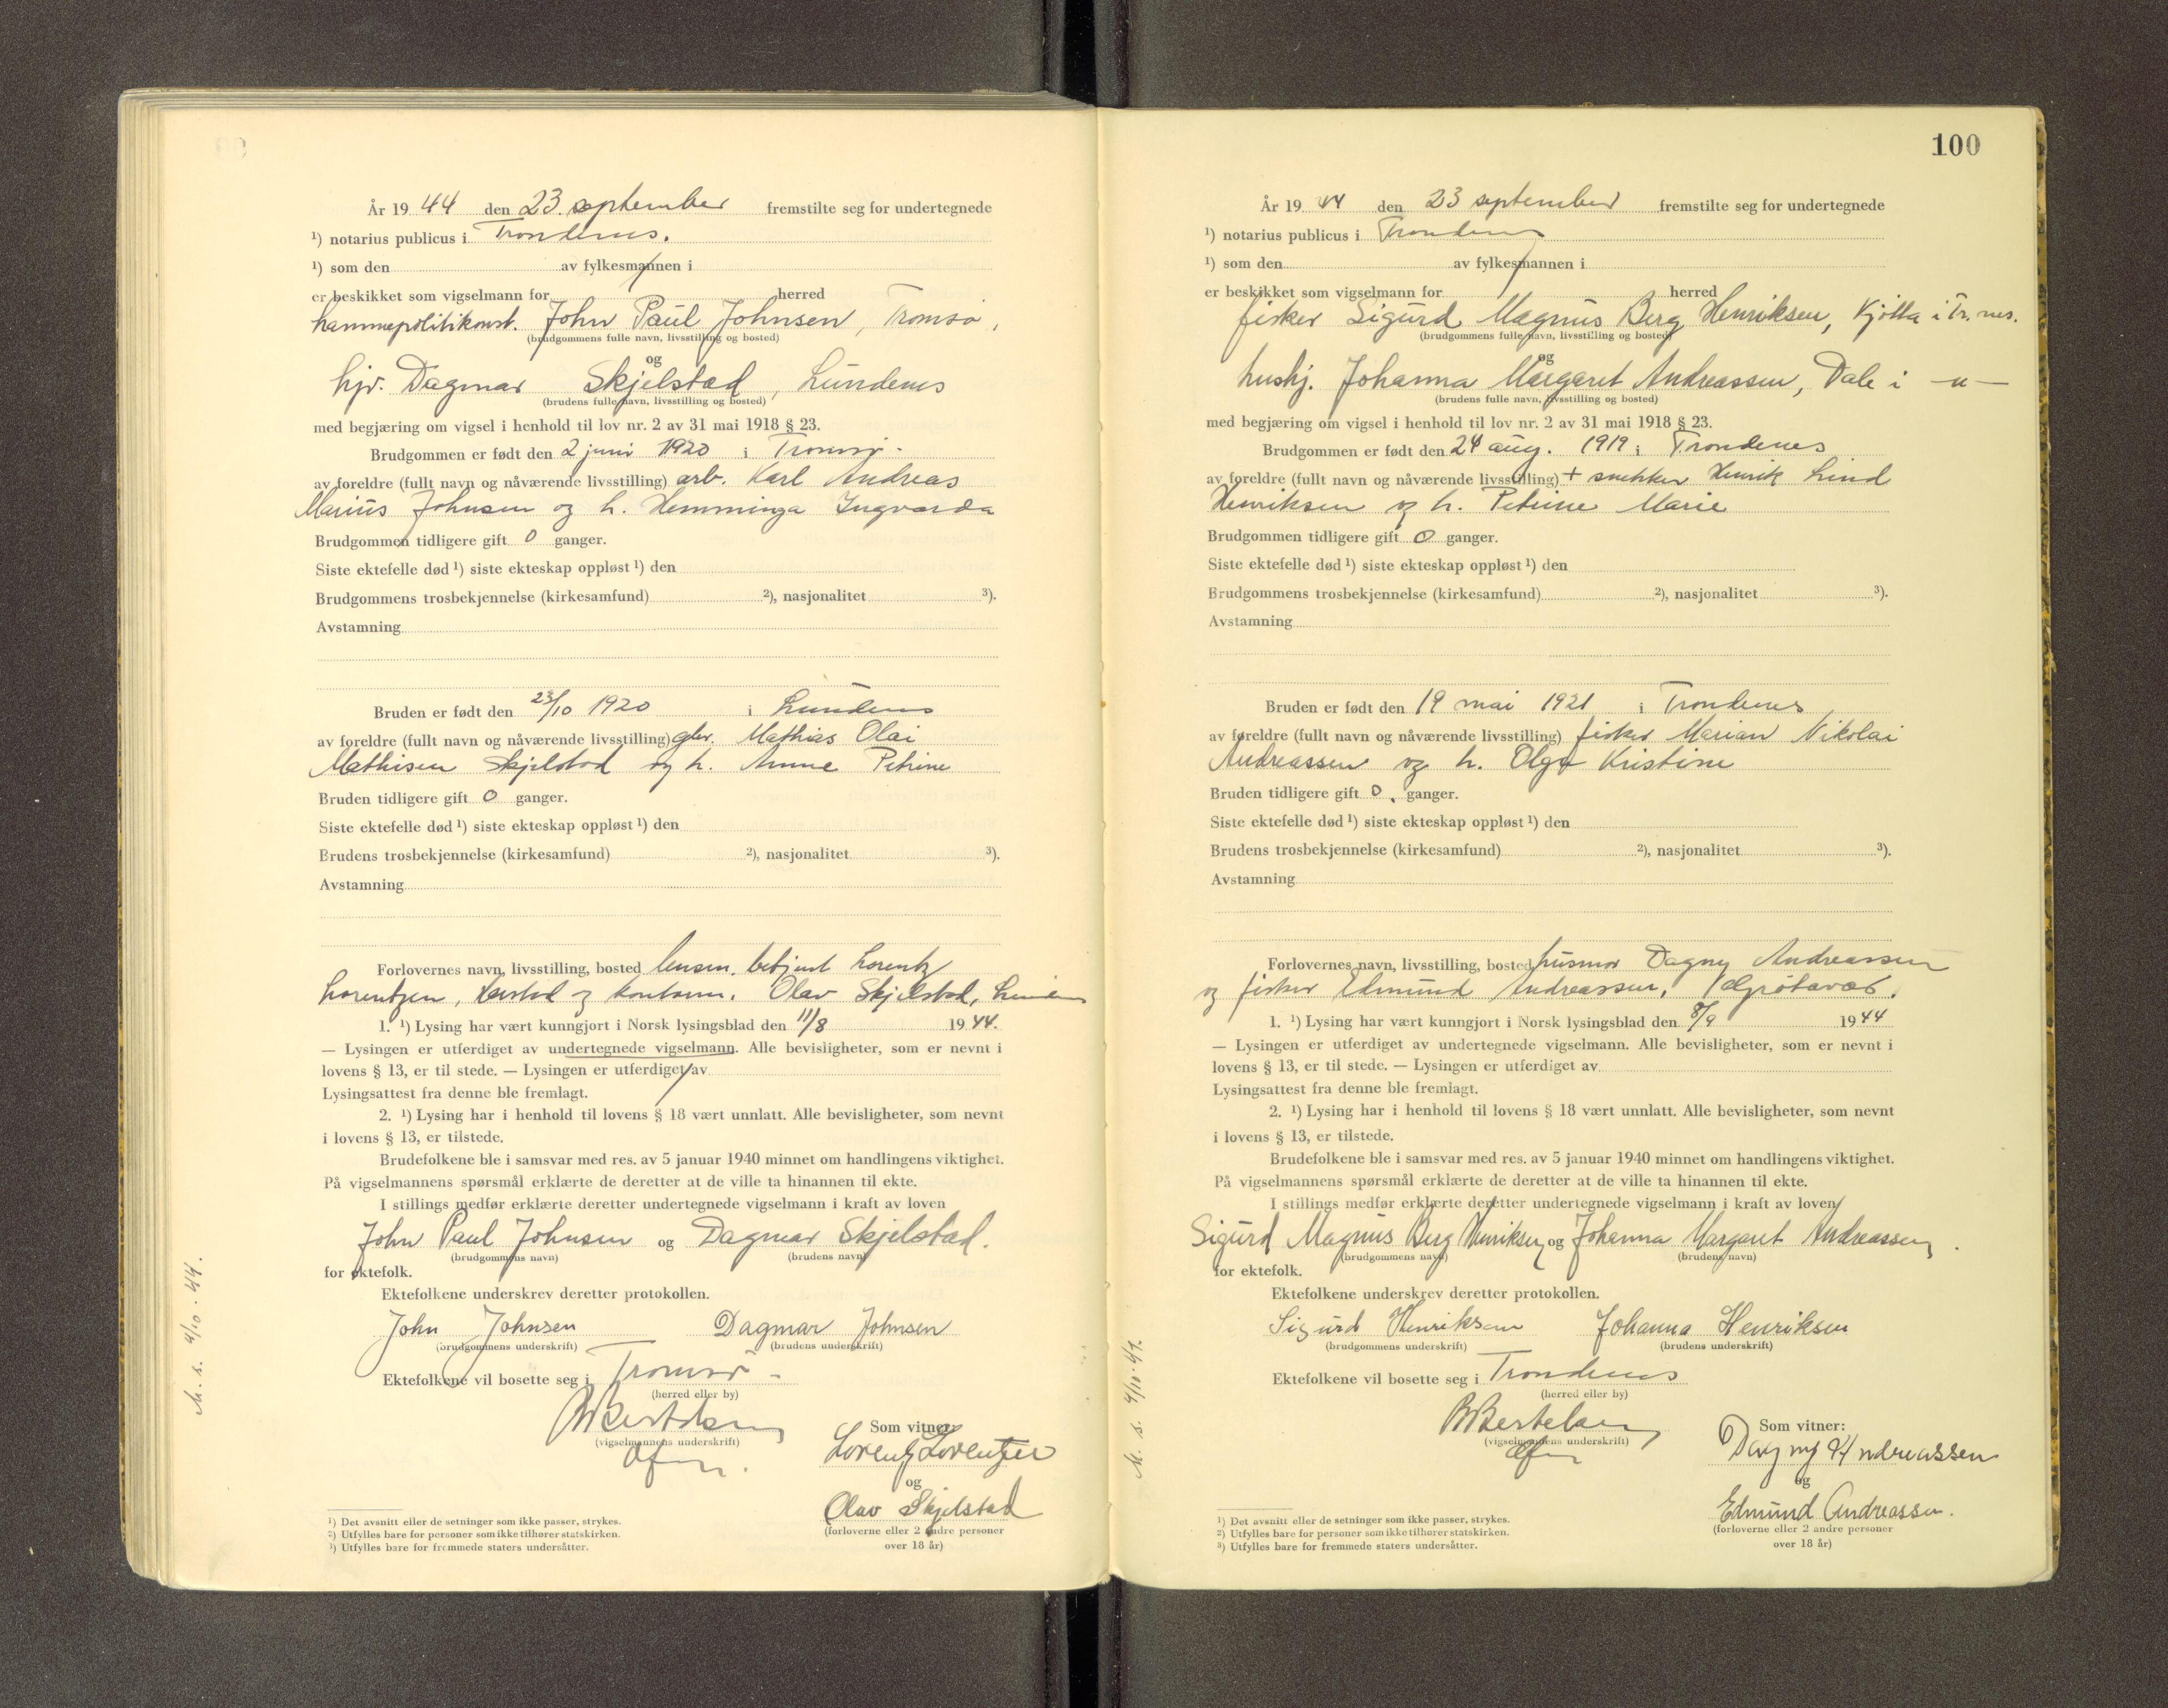 År 19 44 den 23. september fremstilte seg for undertegnede
¹) notarius publicus i Trondenes.
¹) som den av fylkesmannen i
er beskikket som vigselmann for herred
havnepolitikonst. John Paul Johnsen, Tromsø,
(brudgommens fulle navn, livsstilling og bosted)
og
hjv. Dagmar Skjelstad, Lundenes
(brudens fulle navn, livsstilling og bosted)
med begjæring om vigsel i henhold til lov nr. 2 av 31 mai 1918 § 23.
Brudgommen er født den 2 juni 1920 i Tromsø.
av foreldre (fullt navn og nåværende livsstilling) arb. Karl Andreas
Marius Johnsen og h. Hemminga Ingvarda
Brudgommen tidligere gift 0 ganger.
Siste ektefelle død ¹) siste ekteskap oppløst ¹) den
Brudgommens trosbekjennelse (kirkesamfund) ²), nasjonalitet ³).
Avstamning
Bruden er født den 23/10 1920 i Lundenes
av foreldre (fullt navn og nåværende livsstilling) gbr. Mathias Olai
Mathisen Skjelstad og h. Anne Petrine
Bruden tidligere gift 0 ganger.
Siste ektefelle død ¹) siste ekteskap oppløst ¹) den
Brudens trosbekjennelse (kirkesamfund) ²), nasjonalitet ³).
Avstamning
Forlovernes navn, livsstilling, bosted lensm. betjent Lorentz
Lorentzen, Harstad og kontorm. Olav Skjelstad,
1. ¹) Lysing har vært kunngjort i Norsk lysingsblad den 11/8 1944.
— Lysingen er utferdiget av undertegnede vigselmann. Alle bevisligheter, som er nevnt i
lovens § 13, er til stede. — Lysingen er utferdiget av
Lysingsattest fra denne ble fremlagt.
2. ¹) Lysing har i henhold til lovens § 18 vært unnlatt. Alle bevisligheter, som nevnt
i lovens § 13, er tilstede.
Brudefolkene ble i samsvar med res. av 5 januar 1940 minnet om handlingens viktighet.
På vigselmannens spørsmål erklærte de deretter at de ville ta hinannen til ekte.
I stillings medfør erklærte deretter undertegnede vigselmann i kraft av loven
John Paul Johnsen og Dagmar Skjelstad.
(brudgommens navn) (brudens navn)
for ektefolk.
Ektefolkene underskrev deretter protokollen.
John Johnsen Dagmar Johnsen
(brudgommens underskrift) (brudens underskrift)
Ektefolkene vil bosette seg i Tromsø -
(herred eller by)
B Bertelsen
(vigselmannens underskrift)
Som vitner:
Lorentz Lorentzen
og
Olav Skjelstad
(forloverne eller 2 andre personer
over 18 år)
¹) Det avsnitt eller de setninger som ikke passer, strykes.
²) Utfylles bare for personer som ikke tilhører statskirken.
³) Utfylles bare for fremmede staters undersåtter.
M. s. 4/10.44.
100
År 19 44 den 23 september fremstilte seg for undertegnede
¹) notarius publicus i Trondenes
¹) som den av fylkesmannen i
er beskikket som vigselmann for herred
fisker Sigurd Magnus Berg Henriksen, Kjøtta i Tr.nes.
(brudgommens fulle navn, livsstilling og bosted)
og
hushj. Johanna Margaret Andreassen, Dale i —"—
(brudens fulle navn, livsstilling og bosted)
med begjæring om vigsel i henhold til lov nr. 2 av 31 mai 1918 § 23.
Brudgommen er født den 24 aug. 1919 i Trondenes
av foreldre (fullt navn og nåværende livsstilling) + snekker Henrik Lind
Henriksen og h. Petrine Marie
Brudgommen tidligere gift 0 ganger.
Siste ektefelle død ¹) siste ekteskap oppløst ¹) den
Brudgommens trosbekjennelse (kirkesamfund) ²), nasjonalitet ³).
Avstamning
Bruden er født den 19 mai 1921 i Trondenes
av foreldre (fullt navn og nåværende livsstilling) fisker Marian Nikolai
Andreassen og h. Olga Kristine
Bruden tidligere gift 0. ganger.
Siste ektefelle død ¹) siste ekteskap oppløst ¹) den
Brudens trosbekjennelse (kirkesamfund) ²), nasjonalitet ³).
Avstamning
Forlovernes navn, livsstilling, bosted husmor Dagny Andreassen
og fisker Edmund Andreassen,
1. ¹) Lysing har vært kunngjort i Norsk lysingsblad den 8/9 1944
— Lysingen er utferdiget av undertegnede vigselmann. Alle bevisligheter, som er nevnt i
lovens § 13, er til stede. — Lysingen er utferdiget av
Lysingsattest fra denne ble fremlagt.
2. ¹) Lysing har i henhold til lovens § 18 vært unnlatt. Alle bevisligheter, som nevnt
i lovens § 13, er tilstede.
Brudefolkene ble i samsvar med res. av 5 januar 1940 minnet om handlingens viktighet.
På vigselmannens spørsmål erklærte de deretter at de ville ta hinannen til ekte.
I stillings medfør erklærte deretter undertegnede vigselmann i kraft av loven
Sigurd Magnus Berg Henriksen og Johanna Margaret Andreassen
(brudgommens navn) (brudens navn)
for ektefolk.
Ektefolkene underskrev deretter protokollen.
Sigurd Henriksen Johanna Henriksen
(brudgommens underskrift) (brudens underskrift)
Ektefolkene vil bosette seg i Trondenes
(herred eller by)
B Bertelsen
(vigselmannens underskrift)
Som vitner:
Dagny Andreassen
og
Edmund Andreassen.
(forloverne eller 2 andre personer
over 18 år)
¹) Det avsnitt eller de setninger som ikke passer, strykes.
²) Utfylles bare for personer som ikke tilhører statskirken.
³) Utfylles bare for fremmede staters undersåtter.
M. s. 4/10.44.